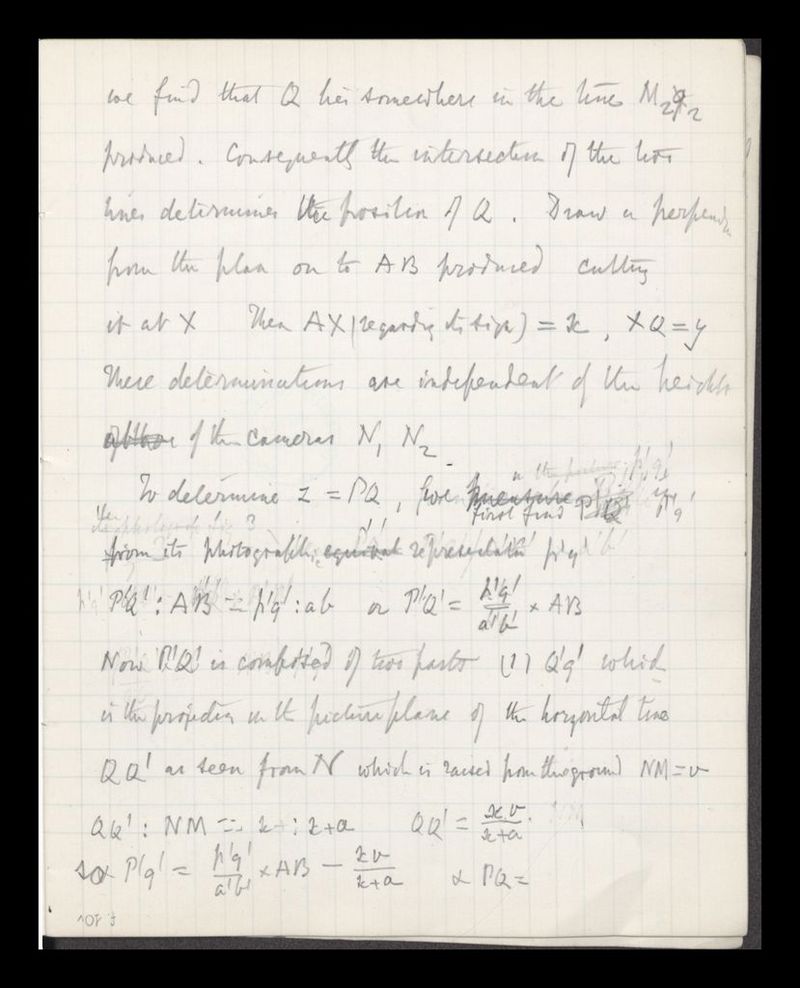 we find that Q lies somewhere in the line M₂q₂
produced. Consequently the intersection of the two
lines determines the position of Q. Draw a
from the plan on to AB produced cutting
it at X Then AX (regarding its sign) = x, XQ = y
These determinations are independent of the heights
of the cameras N₁ N₂
To determine z = PQ, first find
from its photographic p'q'
P'Q' : AB = p'q' : ab or P'Q' = p'q'/a'b' × AB
Now P'Q' is composed of two parts (1) Q'q' which
is the projection on the picture plane of the horizontal line
QQ' as seen from N which is raised from the ground NM = v
QQ' : NM = x : x+a QQ' = xv/x+a.
P'q' = p'q'/a'b' × AB − xv/x+a & PQ =